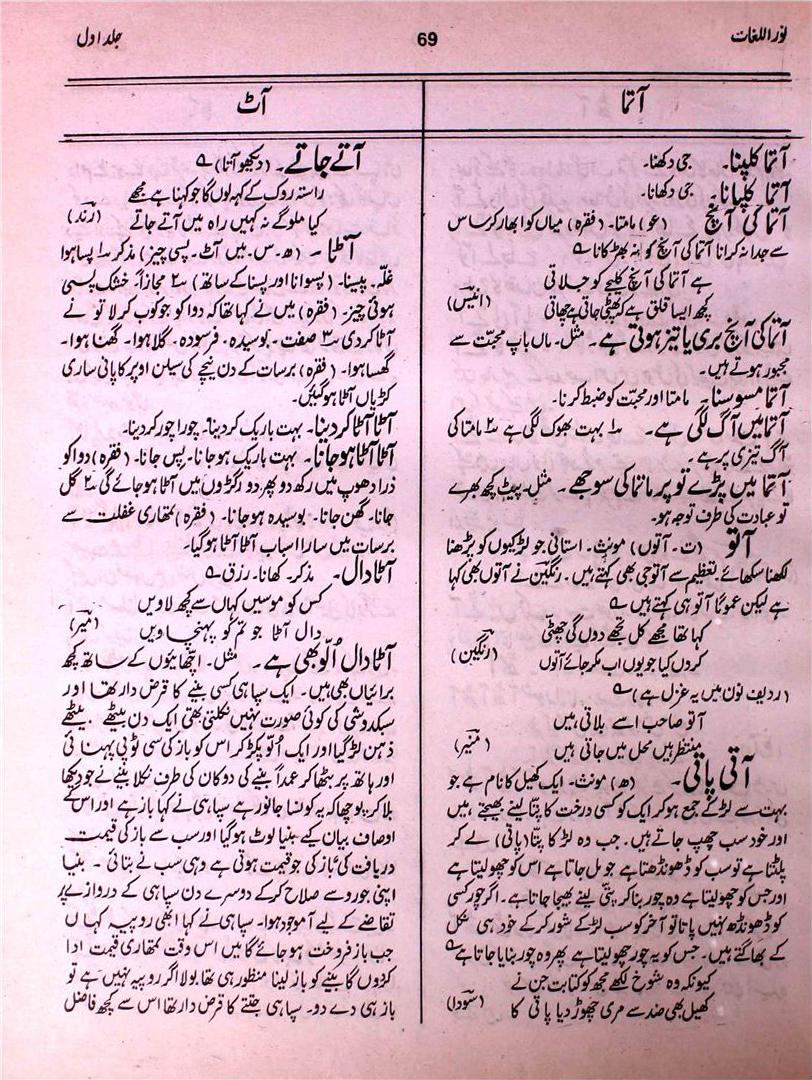 نور اللغات
69
جلد اول
آتما
آتما کلپنا۔ جی دکھنا۔
آتما کلپانا۔ جی دکھانا۔
آتما کی آنچ (عو) مامتا۔ (فقرہ) میاں کو ابھار کر ساس
سے جدا نہ کرانا آتما کی آنچ کو نہ بھڑکانا ؎
ہے آتما کی آنچ کلیجے کو جلاتی
کچھ ایسا قلق ہے کہ پھٹی جاتی ہے چھاتی (انیس)
آتما کی آنچ بری یا تیز ہوتی ہے۔ مثل۔ ماں باپ محبت سے
مجبور ہوتے ہیں۔
آتما مسوسنا۔ مامتا اور محبت کو ضبط کرنا۔
آتما میں آگ لگی ہے۔ ۱؎ بہت بھوک لگی ہے ۲؎ مامتا کی
آگ تیزی پر ہے۔
آتما میں پڑے تو پرماتما کی سوجھے۔ مثل۔ پیٹ کچھ بھرے
تو عبادت کی طرف توجہ ہو۔
آتو (ت۔ آتون) مونث۔ استانی جو لڑکیوں کو پڑھنا
لکھنا سکھائے۔ تعظیم سے آتوجی بھی کہتے ہیں۔ رنگین نے آتوں بھی کہا
ہے لیکن عموماً آتو ہی کہتے ہیں ؎
کہا تھا مجھے کل تجھے دوں گی چھٹی
کروں کیا جو یوں اب مکر جائے آتوں (رنگین)
(ردیف نون میں یہ غزل ہے) ؎
آتو صاحب اسے بلاتی ہیں
منتظر ہیں محل میں جاتی ہیں (منیر)
آتی پاتی۔ (ھ) مونث۔ ایک کھیل کا نام ہے جو
بہت سے لڑکے جمع ہو کر ایک کو کسی درخت کا پتا لینے بھیجتے ہیں
اور خود سب چھپ جاتے ہیں۔ جب وہ لڑکا پتا (پاتی) لے کر
پلٹتا ہے تو سب کو ڈھونڈھتا ہے جو مل جاتا ہے اس کو چھو لیتا ہے
اور جس کو چھو لیتا ہے وہ چور بنا کر پتی لینے بھیجا جاتا ہے۔ اگر چور کسی
کو ڈھونڈھ نہیں پاتا تو آخر کو سب لڑکے شور کر کے خود ہی نکل
کے بھاگتے ہیں۔ جس کو یہ چور چھو لیتا ہے پھر وہ چور بنایا جاتا ہے ؎
کیونکہ وہ شوخ لکھے مجھ کو کتابت جن نے
کھیل بھی ضد سے مری چھوڑ دیا پاتی کا (سودا)
آٹ
آتے جاتے۔ (دیکھو آنا) ؎
راستہ روک کے کہہ لوں گا جو کہنا ہے مجھے
کیا ملو گے نہ کہیں راہ میں آتے جاتے (رند)
آٹا۔ (ھ۔ س۔ میں آٹ۔ پسی چیز) مذکر ۱؎ پسا ہوا
غلہ۔ پیسنا۔ (پسوانا اور پسنا کے ساتھ) ۲؎ مجازاً۔ خشک پسی
ہوئی چیز۔ (فقرہ) میں نے کہا تھا کہ دوا کو جو کوب کر لا تو نے
آٹا کر دی ۳؎ صفت۔ بوسیدہ۔ فرسودہ۔ گلا ہوا۔ گھنا ہوا۔
گھسا ہوا۔ (فقرہ) برسات کے دن نیچے کی سیلن اوپر کا پانی ساری
کڑیاں آٹا ہو گئیں۔
آٹا آٹا کر دینا۔ بہت باریک کر دینا۔ چورا چور کر دینا۔
آٹا آٹا ہو جانا۔ بہت باریک ہو جانا۔ پس جانا۔ (فقرہ) دوا کو
ذرا دھوپ میں رکھ دو پھر دو رگڑوں میں آٹا ہو جائے گی ۲؎ گل
جانا۔ گھن جانا۔ بوسیدہ ہو جانا۔ (فقرہ) تمھاری غفلت سے
برسات میں سارا اسباب آٹا آٹا ہو گیا۔
آٹا دال۔ مذکر۔ کھانا۔ رزق ؎
کس کو موسیں کہاں سے کچھ لاویں
دال آٹا جو تم کو پہنچاویں (میر)
آٹا دال الّو بھی ہے۔ مثل۔ اچھائیوں کے ساتھ کچھ
برائیاں بھی ہیں۔ ایک سپاہی کسی بنیے کا قرض دار تھا اور
سبکدوشی کی کوئی صورت نہیں نکلتی تھی ایک دن بیٹھے بیٹھے
ذہن لڑ گیا اور ایک الّو پکڑ کر اس کو باز کی سی ٹوپی پہنائی
اور ہاتھ پر بٹھا کر عمداً بنیے کی دوکان کی طرف نکلا بنیے نے جو دیکھا
بلا کر پوچھا کہ یہ کونسا جانور ہے سپاہی نے کہا باز ہے اور اس کے
اوصاف بیان کیے بنیا لوٹ ہو گیا اور سب سے باز کی قیمت
دریافت کی باز کی جو قیمت ہوتی ہے وہی سب نے بتائی۔ بنیا
اپنی جورو سے صلاح کر کے دوسرے دن سپاہی کے دروازے پر
تقاضے کے لیے آ موجود ہوا۔ سپاہی نے کہا ابھی روپیہ کہاں
جب باز فروخت ہو جائے گا میں اس وقت تمھاری قیمت ادا
کردوں گا بنیے کو باز لینا منظور ہی تھا بولا اگر روپیہ نہیں ہے تو
باز ہی دے دو۔ سپاہی جتنے کا قرض دار تھا اس سے کچھ فاضل